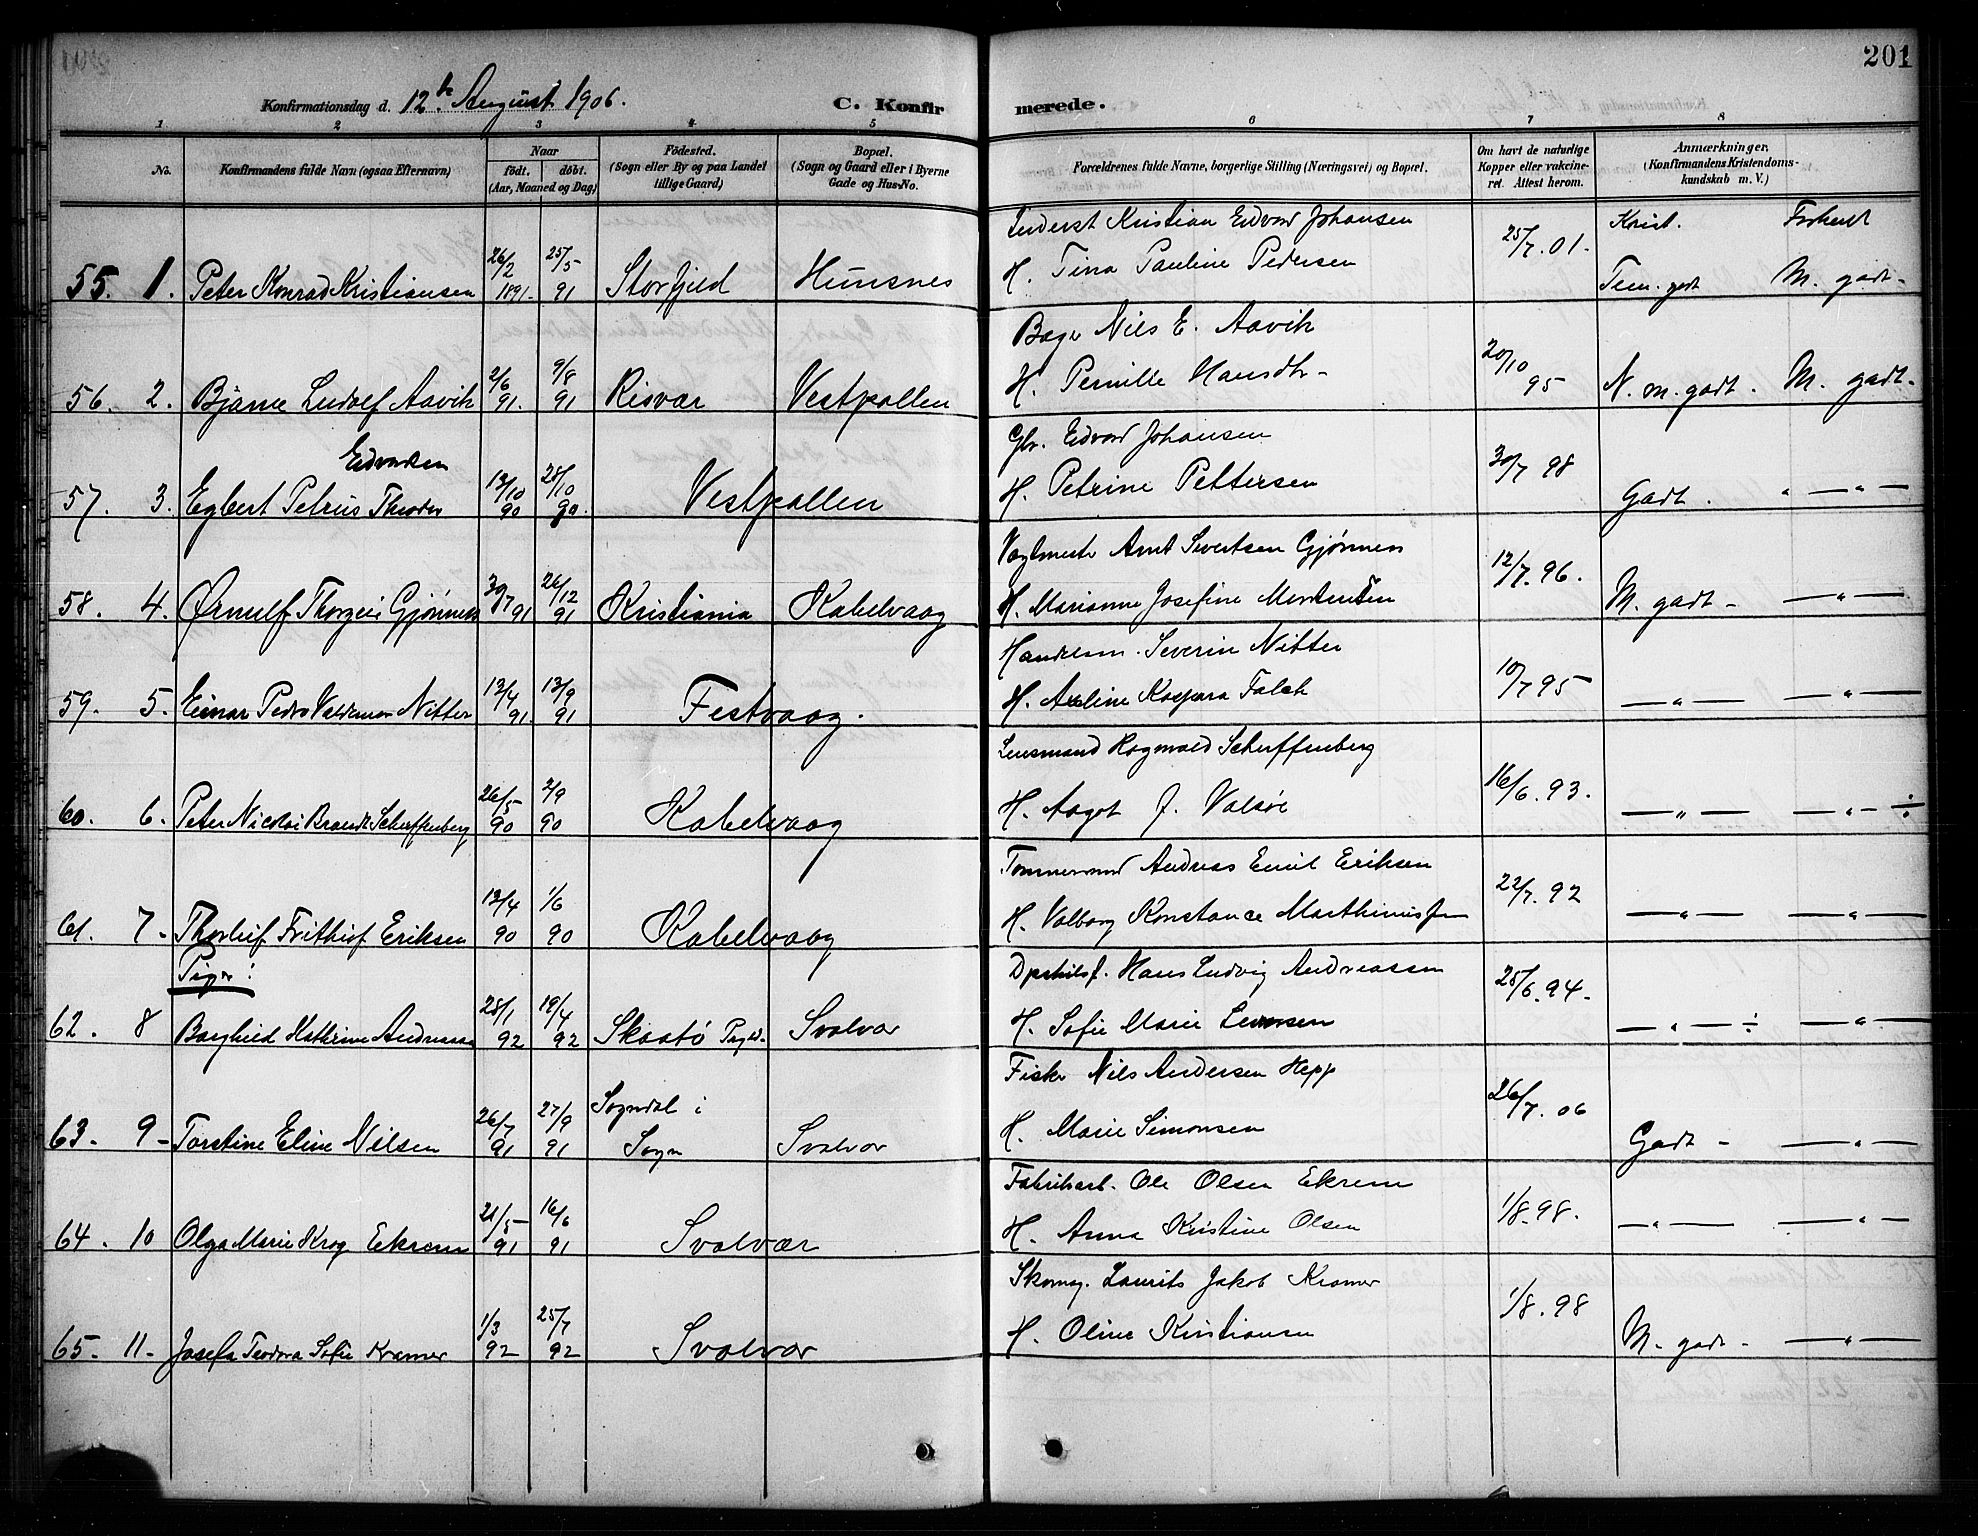 201
Konfirmationsdag d. 12te August 1906.
C. Konfirmerede.
1 2 3 4 5 6 7 8
No. Konfirmandens fulde Navn (ogsaa Efternavn) Naar født. døbt. (Aar, Maaned og Dag) Fødested. (Sogn eller By og paa Landet tillige Gaard) Bopæl. (Sogn og Gaard eller i Byerne Gade og Hus-No. Forældrenes fulde Navne, borgerlige Stilling (Næringsvei) og Bopæl. Om havt de naturlige Kopper eller vakcineret. Attest herom. Anmærkninger. (Konfirmandens Kristendomskundskab m. V.)
Inderst Kristian Edvard Johansen Krist. Forhold
55. 1. Peter Konrad Kristiansen 26/2 1891. 25/5 91 Storfjeld Hunsnes H. Tina Pauline Pedersen 25/7.01. Tem. godt M. godt-
Bager Nils E. Aavik
56. 2. Bjarne Ludolf Aavik 2/6 91. 9/8 91 Risvær Vestpollen H. Pernille Hansdtr- 20/10 95 N. m. godt. M. godt.
Edvardsen Gbr. Edvard Johansen
57. 3. Egbert Petrus Theodor 13/10 90 28/10 90. Vestpollen H. Petrine Pettersen 30/7 98 Godt. " — " —
Vagtmester Arnt Sivertsen Gjønnes
58. 4. Ørnulf Thorgeir Gjønnes 30/7 91 26/12 91 Kristiania Kabelvaag H. Marianne Josefine Mortensen 12/7.96. M. godt - — " —
Handelsm. Severin Nitter
59. 5. Einar Pedro Valdemar Nitter 13/4 91. 13/9 91 Festvaag. H. Axeline Kaspara Falch 10/7 95 — " — — " —
Lensmand Ragnvald Scherffenberg
60. 6. Peter Nicolai Brandt Scherffenberg 26/5 90 2/9 90 Kabelvaag H. Aagot J. Valsøe 16/6.93. — " — — " — ÷
Tømmermand Andreas Emil Eriksen
61. 7- Thorleif Frithjof Eriksen 13/4 90 1/6 90 Kabelvaag H. Valborg Konstance 22/7.92 — " — — " —
Piger!
Hans Ludvig Andreassen
62. 8 Borghild Kathrine Andreassen 28/1 92 19/4 92 Skaatø Svolvær H. Sofie Marie 25/6.94. — " — ÷ — " —
Fisker Nils Andersen Hepp
63. 9- Torstine Eline Nilsen 26/7 91 27/9 91 Sogndal i Sogn Svolvær H. Marie Simonsen 26/7.06 Godt - — " —
Fabrikarb. Ole Olsen Ekrem
64. 10 Olga Marie Krog Ekrem 21/5 91 16/6 91 Svolvær H. Anna Kristine Olsen 1/8.98. — " — — " —
Skomg. Laurits Jakob Kramer
65. 11- Josefa Teodora Sofie Kramer 1/3 92 25/7 92 Svolvær H. Oline Kristiansen 1/8.98 M. godt - — " —